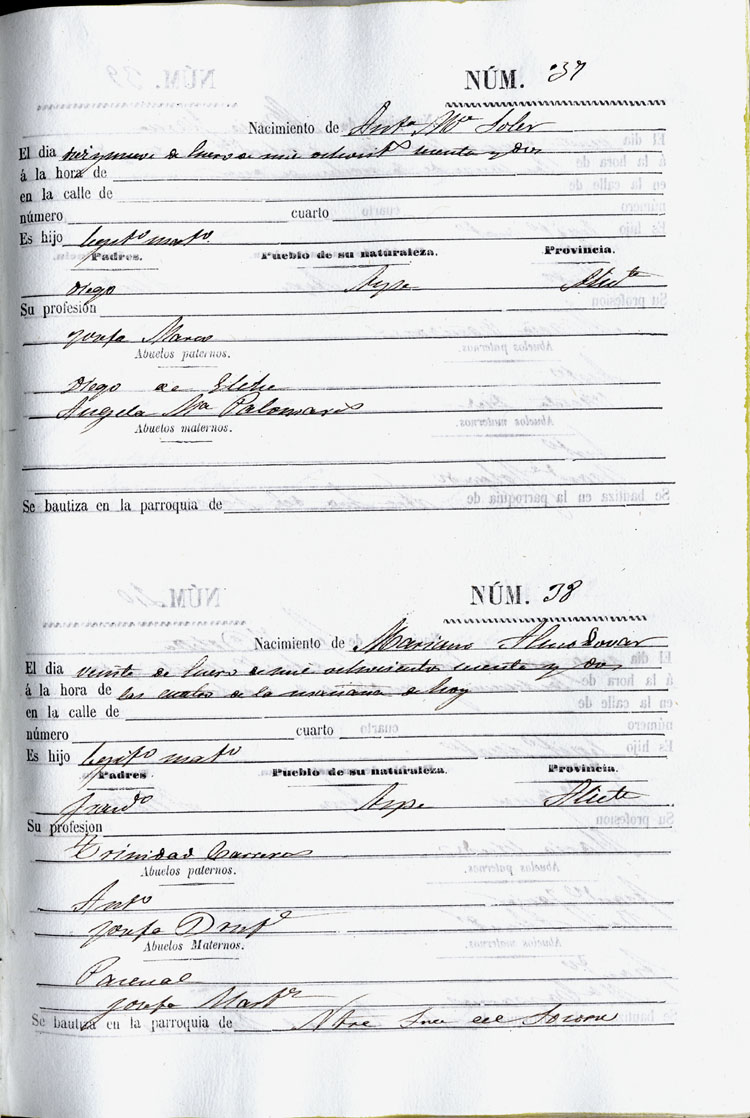 NÚM. 37
Nacimiento de Antª Mª Soler
El dia diez y nueve de Enero de mil ochocts cuenta y dos
á la hora de
en la calle de
número cuarto
Es hijo legitº matº
Padres. Pueblo de su naturaleza. Provincia.
Diego Aspe Alicte
Su profesión
Josefa Marco
Abuelos paternos.
Diego de Elche
Angela Mra Palomares
Abuelos maternos.
Se bautiza en la parroquia de
NÚM. 38
Nacimiento de Mariano Almodovar
El dia veinte de Enero de mil ochociento cuenta y dos
á la hora de las cuatro de la mañana de hoy
en la calle de
número cuarto
Es hijo legitº matº
Padres Pueblo de su naturaleza. Provincia.
Franº Aspe Alicte
Su profesión
Trinidad Carreres
Abuelos paternos.
Antº
Josefa
Abuelos Maternos.
Pascual
Josefa Martz
Se bautiza en la parroquia de Ntra Sra del Socorro